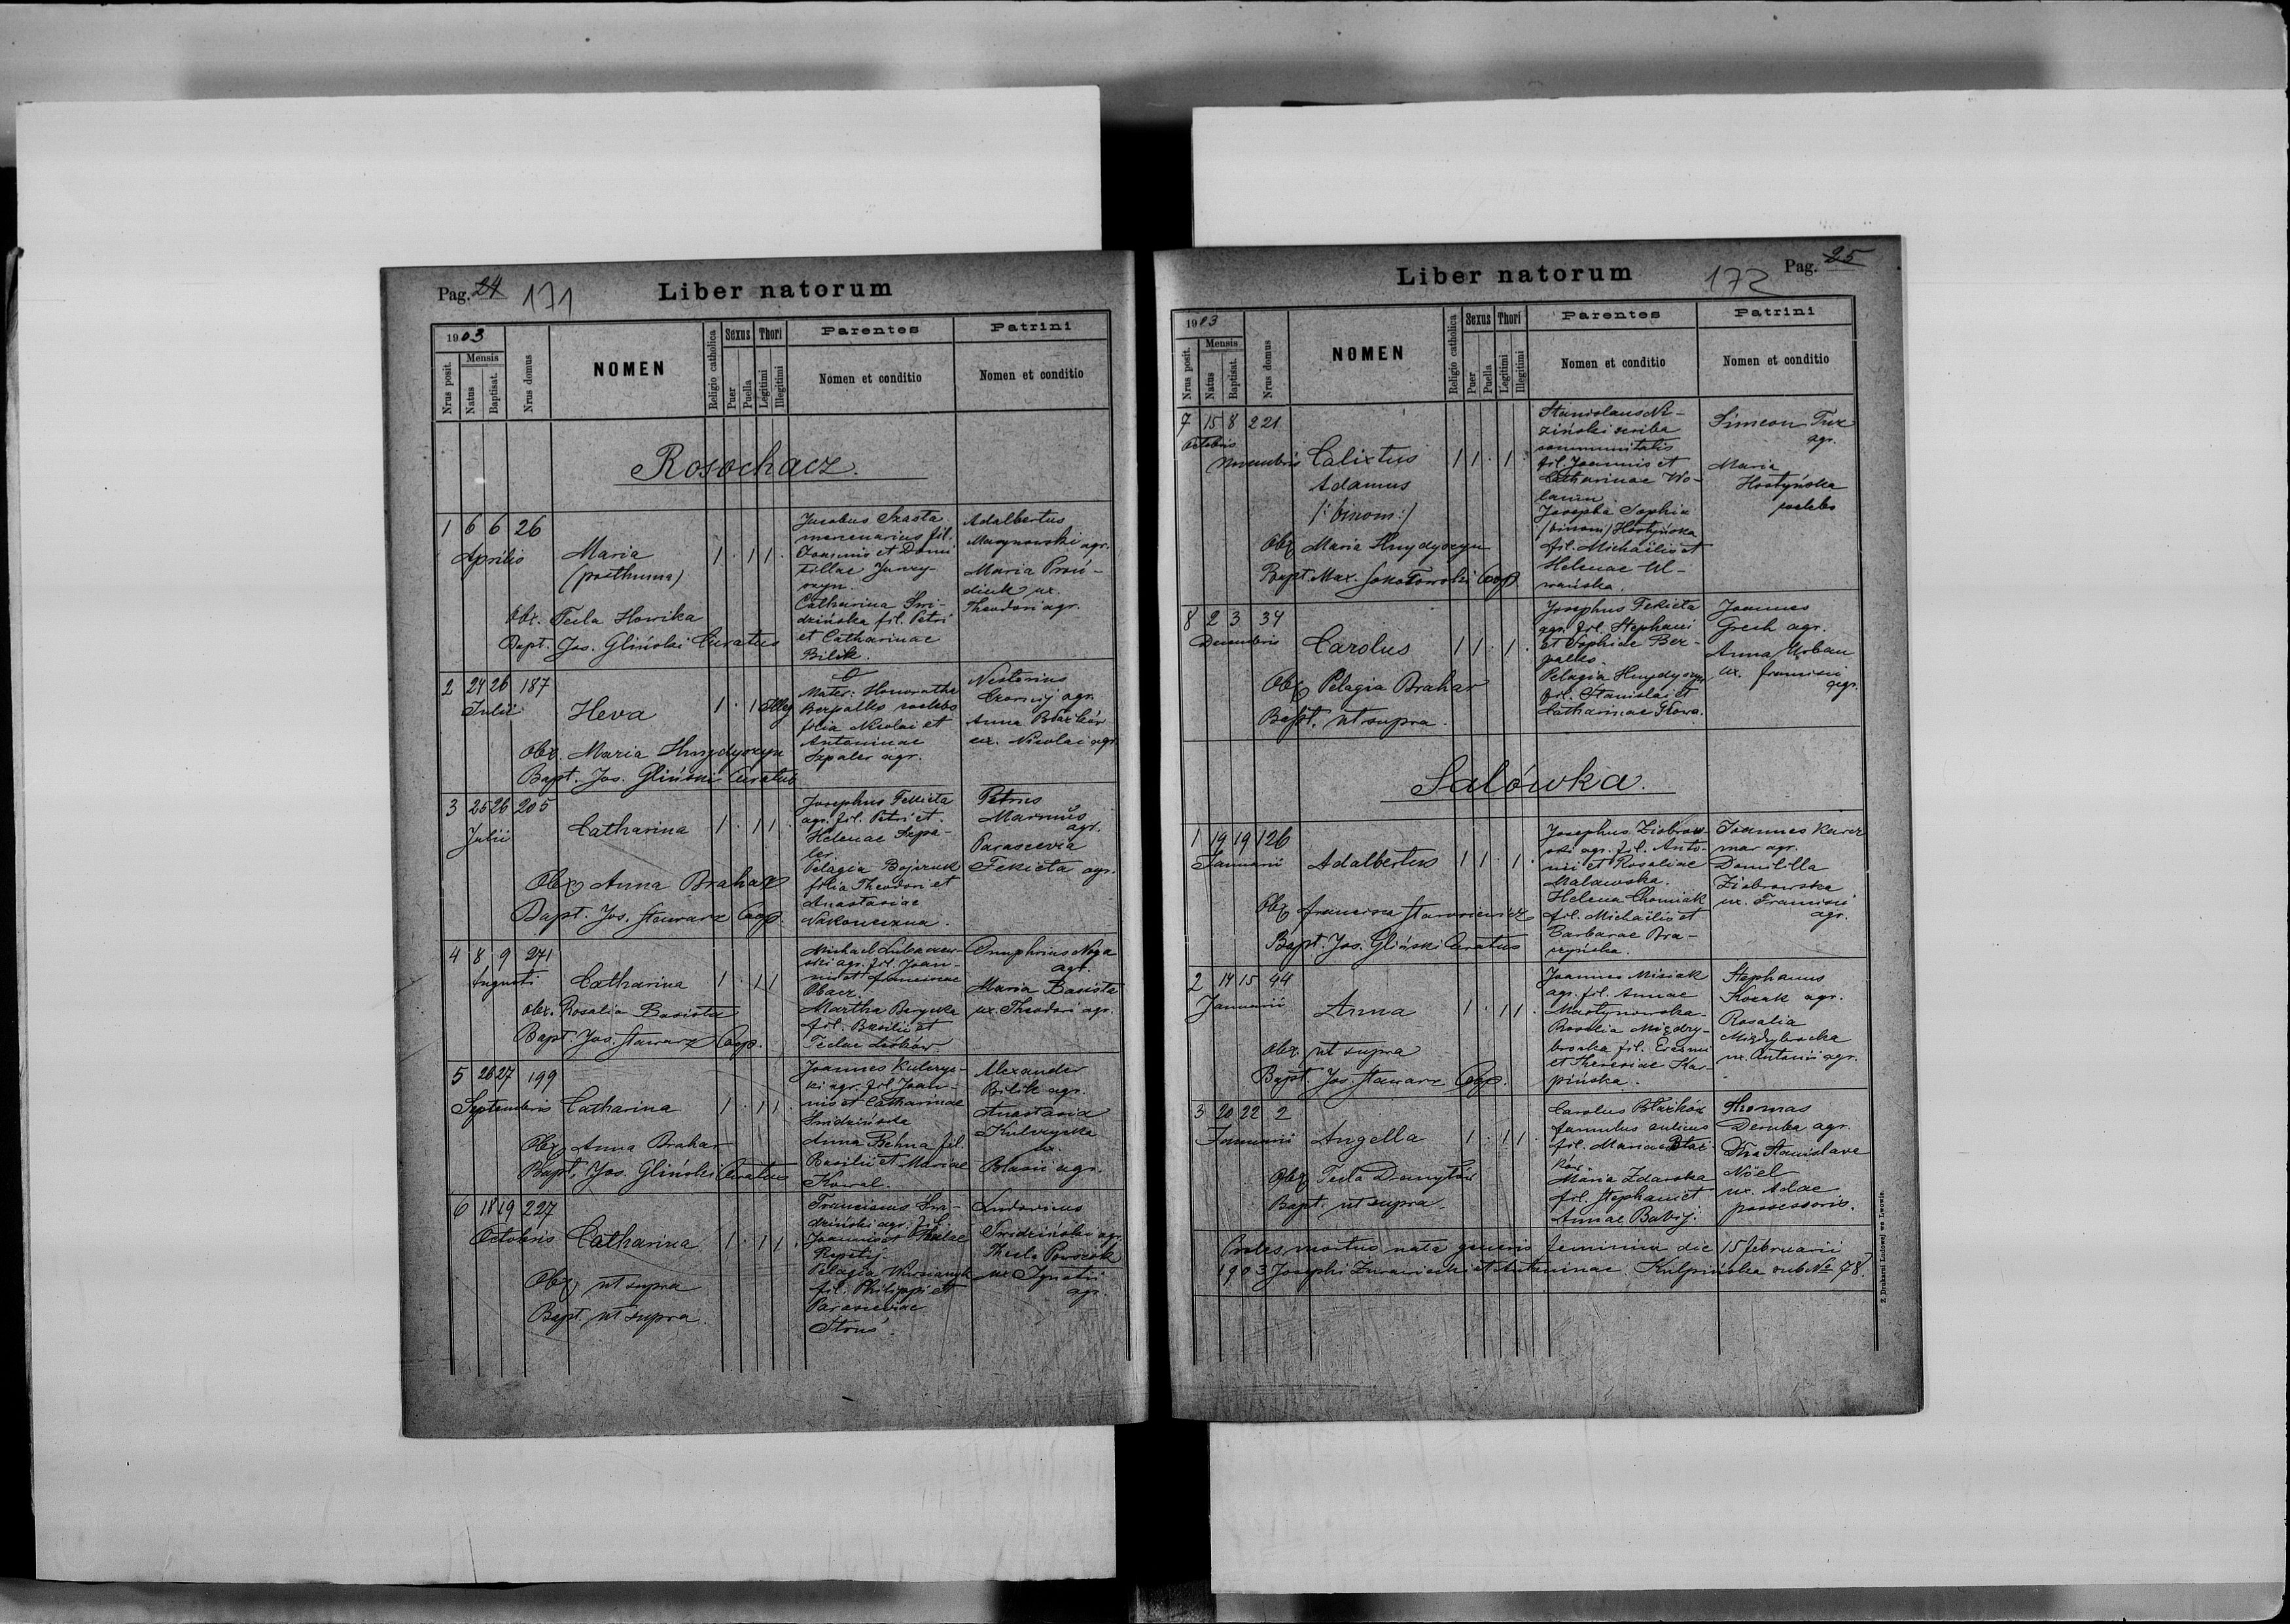 Pag. 24 171
Liber natorum
1903
Nrus posit.
Mensis
Natus
Baptisat.
Nrus domus
NOMEN
Religio catholica
Sexus
Puer
Puella
Thori
Legitimi
Illegitimi
Parentes
Nomen et conditio
Patrini
Nomen et conditio
Rosochacz.
1 6 6 26
Aprilis
Maria
(posthuma)
1 . 1 1 .
Obx. Tecla Howika
Bapt. Jos. Gliński Curatus
Jacobus Szasta
mercenarius fil.
Joannis et Domi
tillae
Catharina Śni-
dzińska fil. Petri
et Catharinae
Bilik
Adalbertus
agr.
Maria
ux.
Theodori agr.
2 24 26 187
Julii
Heva
1 . 1 Illeg
Obx. Maria Hnydyszyn
Bapt. Jos. Gliński Curatus
Mater: Honoratha
Berpalko coelebs
filia Nicolai et
Antoninae
Szpaler agr.
Nestorius
agr.
Anna Błażków
ux. Nicolai agr.
3 25 26 205
Julii
Catharina
1 . 1 1 .
Obx Anna Brahar
Bapt. Jos. Stawarz Coop.
Josephus Fekieta
agr. fil. Petri et
Helenae Szpa-
ler
Pelagia Bojczuk
filia Theodori et
Anastasiae
Nakoneczna.
Petrus
agr.
Parascevia
Fekieta agr.
4 8 9 271
Augusti
Catharina
1 . 1 1
Obx. Rosalia Basista
Bapt. Jos. Stawarz Coop.
Michael
agr. fil. Joan-
nis et Franciscae
Obacz
Martha
fil. Basilii et
Teclae
Onuphrius Noga
agr.
Maria Basista
ux. Theodori agr.
5 26 27 199
Septembris
Catharina
1 . 1 1 .
Obx Anna Brahar
Bapt. Jos. Gliński Curatus
Joannes Kulczyc-
ki agr. fil. Joan-
nis et Catharinae
Śnidzińska
Anna fil.
Basilii et Mariae
Kowal.
Alexander
Bilik agr.
Anastasia
Kulczycka
ux.
Blasii agr.
6 18 19 227
Octobris
Catharina
1 . 1 1 .
Obx ut supra
Bapt. ut supra.
Franciscus Śni-
dziński agr. fil.
Joannis et Theclae
Repetij
Pelagia
fil. Philippi et
Parasceviae
Struś.
Ludovicus
Śnidziński agr.
Thecla
ux. Ignatii
agr.
Liber natorum
172 Pag. 25
1903
Nrus posit.
Mensis
Natus
Baptisat.
Nrus domus
NOMEN
Religio catholica
Sexus
Puer
Puella
Thori
Legitimi
Illegitimi
Parentes
Nomen et conditio
Patrini
Nomen et conditio
7 15 8 221
Octobris
Novembris
Calixtus
Adamus
/:binom:/
1 1 . 1 .
Obx Maria Hnydyszyn
Bapt. Max. Sokołowski Coop.
Stanislaus Ni-
ziński scriba
communitatis
fil. Joannis et
Catharinae Wo-
lanin.
Josepha Sophia
/binom/ Hostyńska
fil. Michaëlis et
Helenae Ul-
wańska.
Simeon Tux
agr.
Maria
Hostyńska
coelebs
8 2 3 34
Decembris
Carolus
1 1 . 1 .
Obx Pelagia Brahar
Bapt. ut supra.
Josephus Fekieta
agr. fil. Stephani
et Sophiae Ber-
palko.
Pelagia Hnydyszyn
fil. Stanislai et
Catharinae Głowa.
Joannes
Grech agr.
Anna Urban
ux. Francisci
agr.
Salówka.
1 19 19 126
Januarii
Adalbertus
1 1 . 1 .
Obx Francisca Starosiewicz
Bapt. Jos. Gliński Curatus
Josephus Ziobrow-
ski agr. fil. Anto-
nii et Rosaliae
Malawska.
Helena Chomiak
fil. Michaëlis et
Barbarae Bra-
czyńska.
Joannes Karcz
mar agr.
Domitilla
Ziobrowska
ux. Francisci
agr.
2 14 15 44
Januarii
Anna
1 . 1 1 .
Obx. ut supra
Bapt. Jos. Stawarz Coop.
Joannes Misiak
agr. fil. Annae
Martynowska.
Rosalia Między-
brocka fil. Erasmi
et Theresiae Kar-
pińska.
Stephanus
Kozak agr.
Rosalia
Międzybrocka
ux. Antonii agr.
3 20 22 2
Januarii
Angella
1 . 1 1 .
Obx Tecla Danyłów
Bapt. ut supra.
Carolus Błażków
famulus aulicus
fil. Mariae Błaż
ków.
Maria Zdarska
fil. Stephani et
Annae Babij.
Thomas
Demba agr.
Stanislava
Nöel
ux. Adae
possessoris.
Proles mortua nata generis feminini die 15 februarii
1903 Josephi Żurawiecki et Antoninae Kulpińska sub No 78.
Z Drukarni Ludowej we Lwowie.